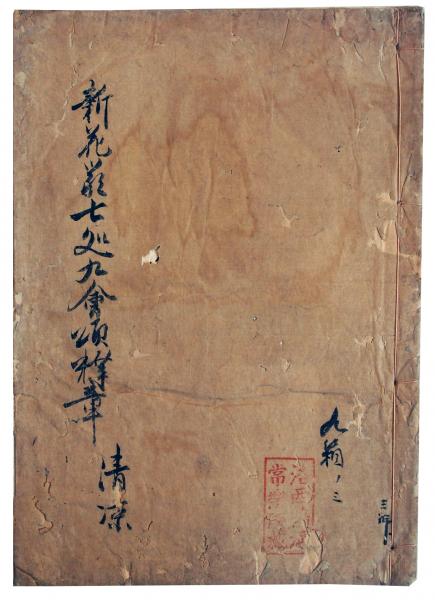 新花嚴七处九會頌釋章
清凉
九箱ノ三
常樂